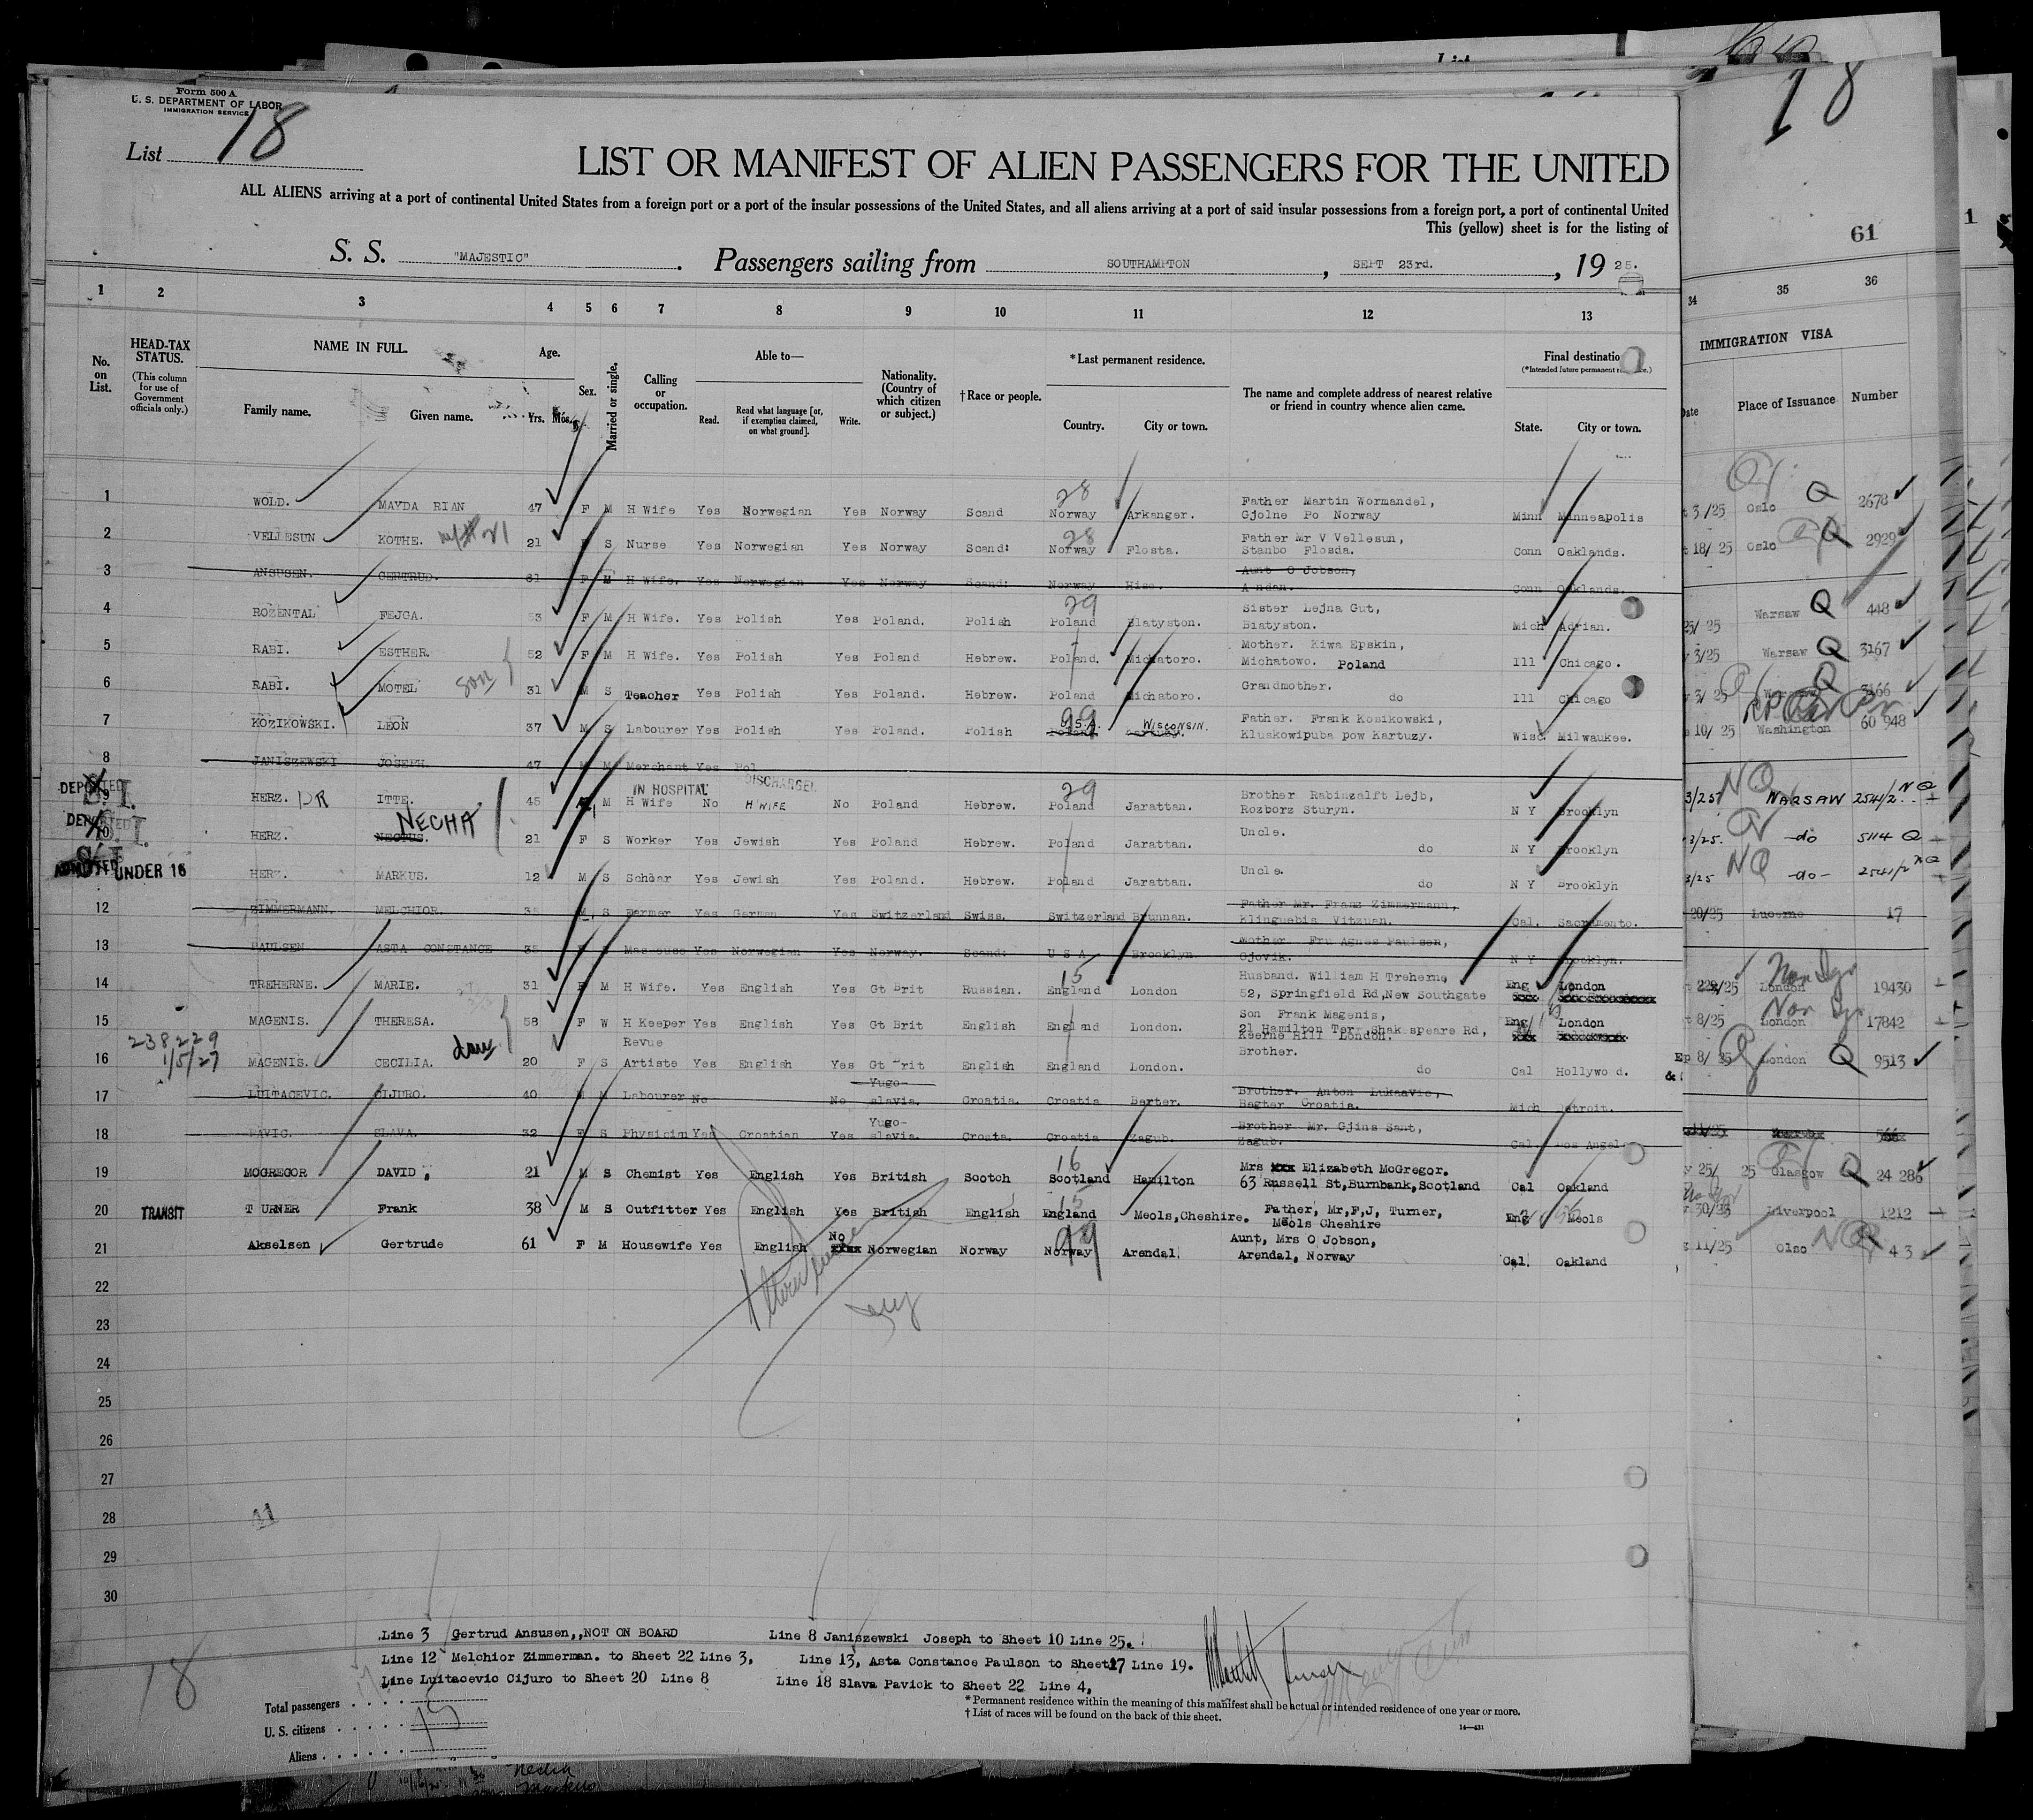 Form 500 A
U. S. DEPARTMENT OF LABOR
IMMIGRATION SERVICE
List 18
18
61
LIST OR MANIFEST OF ALIEN PASSENGERS FOR THE UNITED
ALL ALIENS arriving at a port of continental United States from a foreign port or a port of the insular possessions of the United States, and all aliens arriving at a port of said insular possessions from a foreign port, a port of continental United
This (yellow) sheet is for the listing of
S. S. "MAJESTIC" . Passengers sailing from SOUTHAMPTON , SEPT 23rd. , 19 25.
1 2 3 4 5 6 7 8 9 10 11 12 13 34 35 36
No. on List.
HEAD-TAX STATUS.
(This column for use of Government officials only.)
NAME IN FULL.
Family name. Given name.
Age.
Yrs. Mos.
Sex.
Married or single.
Calling or occupation.
Able to—
Read. Read what language [or, if exemption claimed, on what ground]. Write.
Nationality. (Country of which citizen or subject.)
† Race or people.
* Last permanent residence.
Country. City or town.
The name and complete address of nearest relative or friend in country whence alien came.
Final destination
(*Intended future permanent
State. City or town.
IMMIGRATION VISA
Date Place of Issuance Number
1 WOLD. MAVDA RIAN 47 F M H Wife Yes Norwegian Yes Norway Scand 28 Norway Arkanger. Father Martin Wormandel, Gjolne Po Norway Minn Minneapolis 3/25 Oslo Q 2678
2 VELLESUN KOTHE. 21 F S Nurse Yes Norwegian Yes Norway Scand: 28 Norway Flosta. Father Mr V Vellesun, Stanbo Flosda. Conn Oaklands. 18/25 Oslo Q 2929
3 ANSUSEN. GERTRUD. 61 F M H Wife. Yes Norwegian Yes Norway Scand: Norway Hiso. Aunt O Jobson, Andan. Conn Oaklands.
4 ROZENTAL FEJGA. 53 F M H Wife. Yes Polish Yes Poland. Polish 29 Poland Blatyston. Sister Lejna Gut, Biatyston. Mich Adrian. 25/25 Warsaw Q 448
5 RABI. ESTHER. 52 F M H Wife. Yes Polish Yes Poland Hebrew. Poland. Michatoro. Mother. Kiwa Epskin, Michatowo. Poland Ill Chicago. 3/25 Warsaw Q 3167
6 RABI. MOTEL son 31 M S Teacher Yes Polish Yes Poland. Hebrew. Poland Michatoro. Grandmother. do Ill Chicago 3/25 Q 3166
7 KOZIKOWSKI. LEON 37 M S Labourer Yes Polish Yes Poland. Polish U.S.A. WISCONSIN. Father. Frank Kosikowski, Kluskowipuba pow Kartuzy. Wisc. Milwaukee. 10/25 Washington 60 948
8 JANISZEWSKI JOSEPH. 47 M M Merchant Yes Pol
DEPORTED S.I. 9 HERZ. ITTE. 45 M IN HOSPITAL DISCHARGED H Wife No H WIFE No Poland Hebrew. 29 Poland Jarattan. Brother Rabinzalft Lejb, Rozborz Sturyn. N Y Brooklyn 3/25 NQ WARSAW 2541/2 NQ
DEPORTED S.I. 10 HERZ. NECHA 21 F S Worker Yes Jewish Yes Poland Hebrew. Poland Jarattan. Uncle. do N Y Brooklyn 3/25. do 5114 Q
ADMITTED S.I. UNDER 16 HERZ. MARKUS. 12 M S Scholar Yes Jewish Yes Poland. Hebrew. Poland Jarattan. Uncle. do N Y Brooklyn 3/25 NQ -do- 2541/2 NQ
12 ZIMMERMANN. MELCHIOR. M. S Farmer Yes German Yes Switzerland Swiss. Switzerland Brunnan. Father Mr. Franz Zimmermann, Klinguebia Vitzuan. Cal. Sacramento. 20/25 Lucerne 17
13 PAULSEN ASTA CONSTANCE 35 F S Masseuse Yes Norwegian Yes Norway. Scand: U S A. Brooklyn. Mother. Fru Agnes Paulsen, Gjovik. N Y Brooklyn.
14 TREHERNE. MARIE. 31 F M H Wife. Yes English Yes Gt Brit Russian. 15 England London Husband. William H Treherne, 52, Springfield Rd, New Southgate Eng London 22/25 London 19430
15 MAGENIS. THERESA. 58 F W H Keeper Yes English Yes Gt Brit English England London. Son Frank Magenis, 21 Hamilton Terr, Shakespeare Rd, Keerne Hill London. Eng London 8/25 London 17842
238229 1/5/27
16 MAGENIS. CECILIA. dau 20 F S Revue Artiste Yes English Yes Gt Brit English England London. Brother. do Cal Hollywood. 8/25 London Q 9513
17 LUITACEVIC. CIJURO. 40 M M Labourer No No Yugo-slavia. Croatia. Croatia Berter. Brother. Anton Lukaavic, Bagter Croatia. Mich Detroit.
18 PAVIC. SLAVA. 32 F S Physician Yes Croatian Yes Yugo-slavia. Croata. Croatia Zagub. Brother Mr. Gjins Sant, Zagub. Cal. Los Angel. 11/25 566
19 MCGREGOR DAVID, 21 M S Chemist Yes English Yes British Scotch 16 Scotland Hamilton Mrs Elizabeth McGregor. 63 Russell St, Burnbank, Scotland Cal Oakland 25/25 Glasgow Q 24 286
20 TRANSIT TURNER Frank 38 M S Outfitter Yes English Yes British English 15 England Meols, Cheshire. Father, Mr, F, J, Turner, Meols Cheshire Eng Meols 30/25 Liverpool 1212
21 Akselsen Gertrude 61 F M Housewife Yes English No Norwegian Norway Norway Arendal. Aunt, Mrs O Jobson, Arendal, Norway Cal. Oakland 11/25 Olso NQ 43
22
23
24
25
26
27
28
29
30
Line 3 Gertrud Ansusen,,NOT ON BOARD Line 8 Janiszewski Joseph to Sheet 10 Line 25.
Line 12 Melchior Zimmerman. to Sheet 22 Line 3, Line 13, Asta Constance Paulson to Sheet 17 Line 19.
Line Luitacevic Cijuro to Sheet 20 Line 8 Line 18 Slava Pavick to Sheet 22 Line 4,
18
Total passengers
U. S. citizens
Aliens
15
* Permanent residence within the meaning of this manifest shall be actual or intended residence of one year or more.
† List of races will be found on the back of this sheet.
14—431